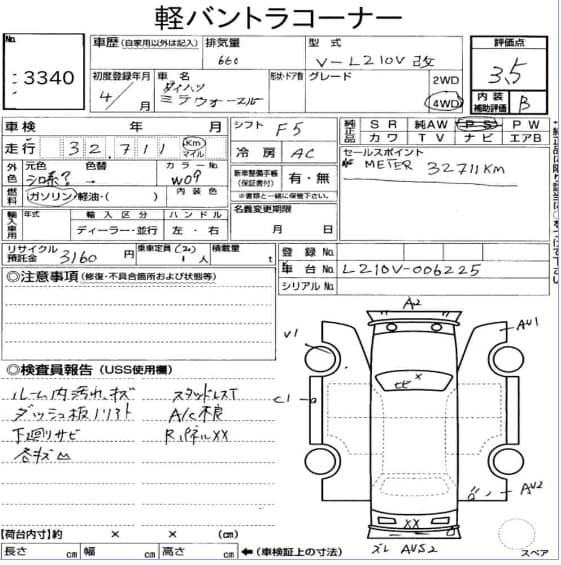 軽バントラコーナー
No.
3340
車歴 (自家用以外は記入) 排気量 660
型式 V-L210V 改
評価点 3.5
初度登録年月 4/ 月
車名 ダイハツ ミラウォースルー
形状・ドア数 グレード
2WD
4WD
内装補助評価 B
車検 年 月
走行 32,711 Km マイル
シフト F5
冷房 AC
純正品 SR 純AW PS PW
カワ TV ナビ エアB
セールスポイント
METER 32711KM
外色 元色 シロ系? 色替 → カラーNo. W09
燃料 ガソリン/軽油・( ) 内装色
新車整備手帳(保証書付) 有・無
※書類と一緒に保管して下さい。
名義変更期限
月 日
輸入車用 年式 輸入区分 ハンドル
ディーラー・並行 左・右
リサイクル預託金 3160 円 乗車定員 人 積載量 t
登録No.
車台No. L210V-006225
シリアルNo.
◎注意事項 (修復・不具合箇所および状態等)
◎検査員報告 (USS使用欄)
ルーム内汚れ、キズ
ダッシュ板ノリアト
下廻りサビ
各キズ凹
スタッドレスT
A/C不良
RパネルXX
A2
V1
AU1
ヒビ ×
C1
AU2
XX
ズレ AUS2
スペア
【荷台内寸】約 × × (cm)
長さ cm 幅 cm 高さ cm ←(車検証上の寸法)